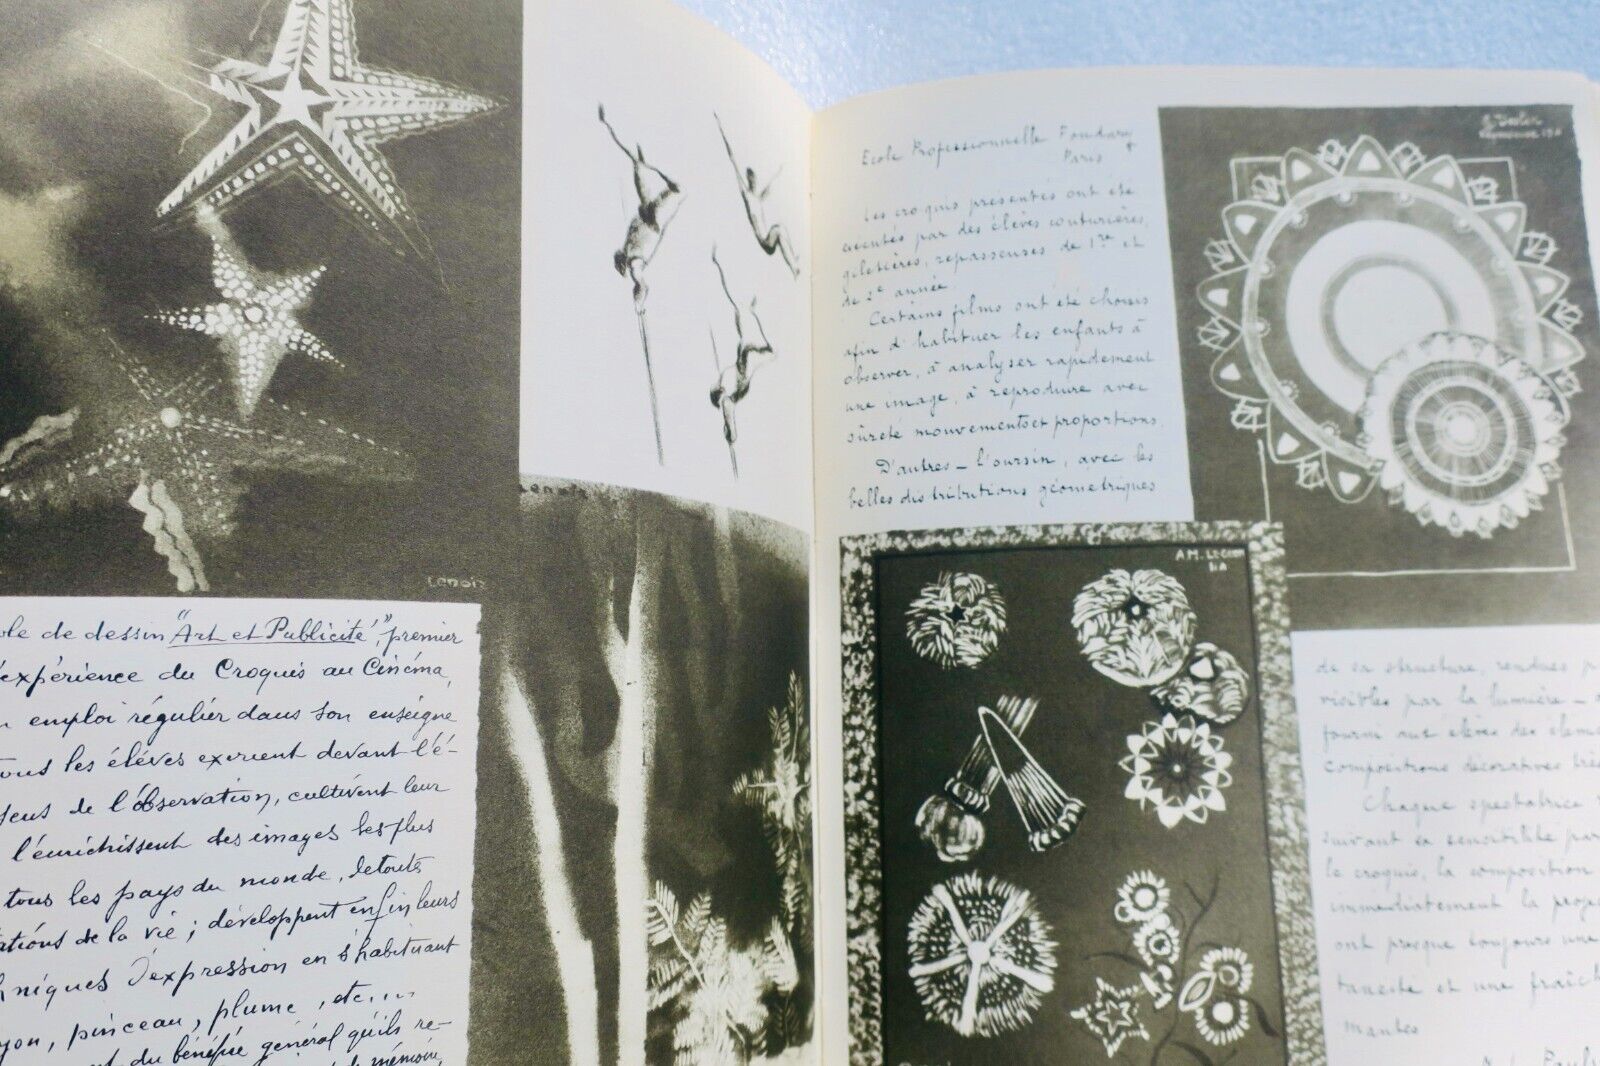 Lenoir
Lenoir
ole de dessin "Art et Publicité", premier
expérience du Croquis au Cinéma,
n emploi régulier dans son enseigne
tous les élèves exercent devant l'é-
sens de l'observation, cultivent leur
l'enrichissent des images les plus
tous les pays du monde, de toutes
ations de la vie ; développent enfin leurs
hniques d'expression en s'habituant
yon, pinceau, plume, etc...
du bénéfice général qu'ils re-
de mémoire,
Ecole Professionnelle Fondary
Paris
Les croquis présentés ont été
exécutés par des élèves couturières,
giletières, repasseuses de 1re et
de 2e année.
Certains films ont été choisis
afin d'habituer les enfants à
observer, à analyser rapidement
une image, à reproduire avec
sûreté mouvements et proportions.
D'autres - l'oursin, avec les
belles distributions géométriques
A.M. LE
de sa structure, rendues
visibles par la lumière -
fourni aux élèves des élém
compositions décoratives trè
Chaque spectatrice
suivant sa sensibilité par
le croquis, la composition
immédiatement
ont presque toujours une
tanéité et une fraîch